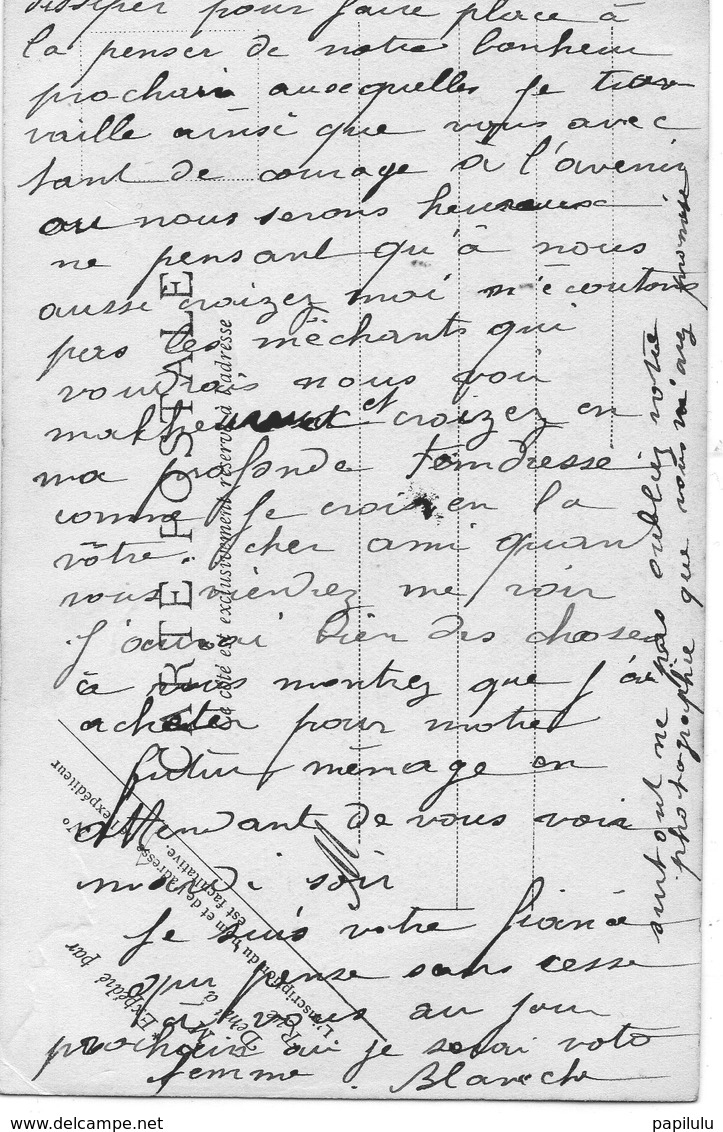 dissiper pour faire place à
la penser de notre bonheur
prochain auxequelles je tra
vaille ainsi que vous avec
tant de courage à l'avenir
ou nous serons heureux
ne pensant qu'à nous
aussi croizez moi n'écoutons
pas les mêchants qui
voudrais nous voir
malheureux et croizez en
ma profonde tendresse
comme je crois en la
vôtre. cher ami quan
vous viendrez me voir
j'aurai bien des choses
à vous montrez que j'ai
acheter pour notre
futur mènage en
attendant de vous voir
mardi soir
Je suis votre fiancé
qui pense sans cesse
à vous au jour
prochain ou je serai votr
femme. Blanche
surtout ne pas oubliez votre
photographie que vous m'avez promise
CARTE POSTALE
Ce côté est exclusivement réservé à l'adresse
Expédié par
M
Rue
N°
Dent à
L'inscription du nom et de l'adresse
de l'expéditeur
est facultative.
www.delcampe.net
papilulu